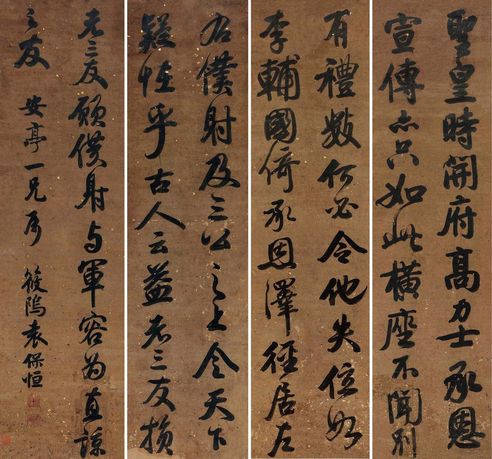 聖皇時開府高力士承恩
宣傳亦只如此橫座不聞別
有禮數何必令他失位如
李輔國倚承恩澤徑居左
右僕射及三公之上令天下
疑怪乎古人云益者三友損
者三友願僕射與軍容為直諒
之友
安亭一兄屬 筱塢袁保恒